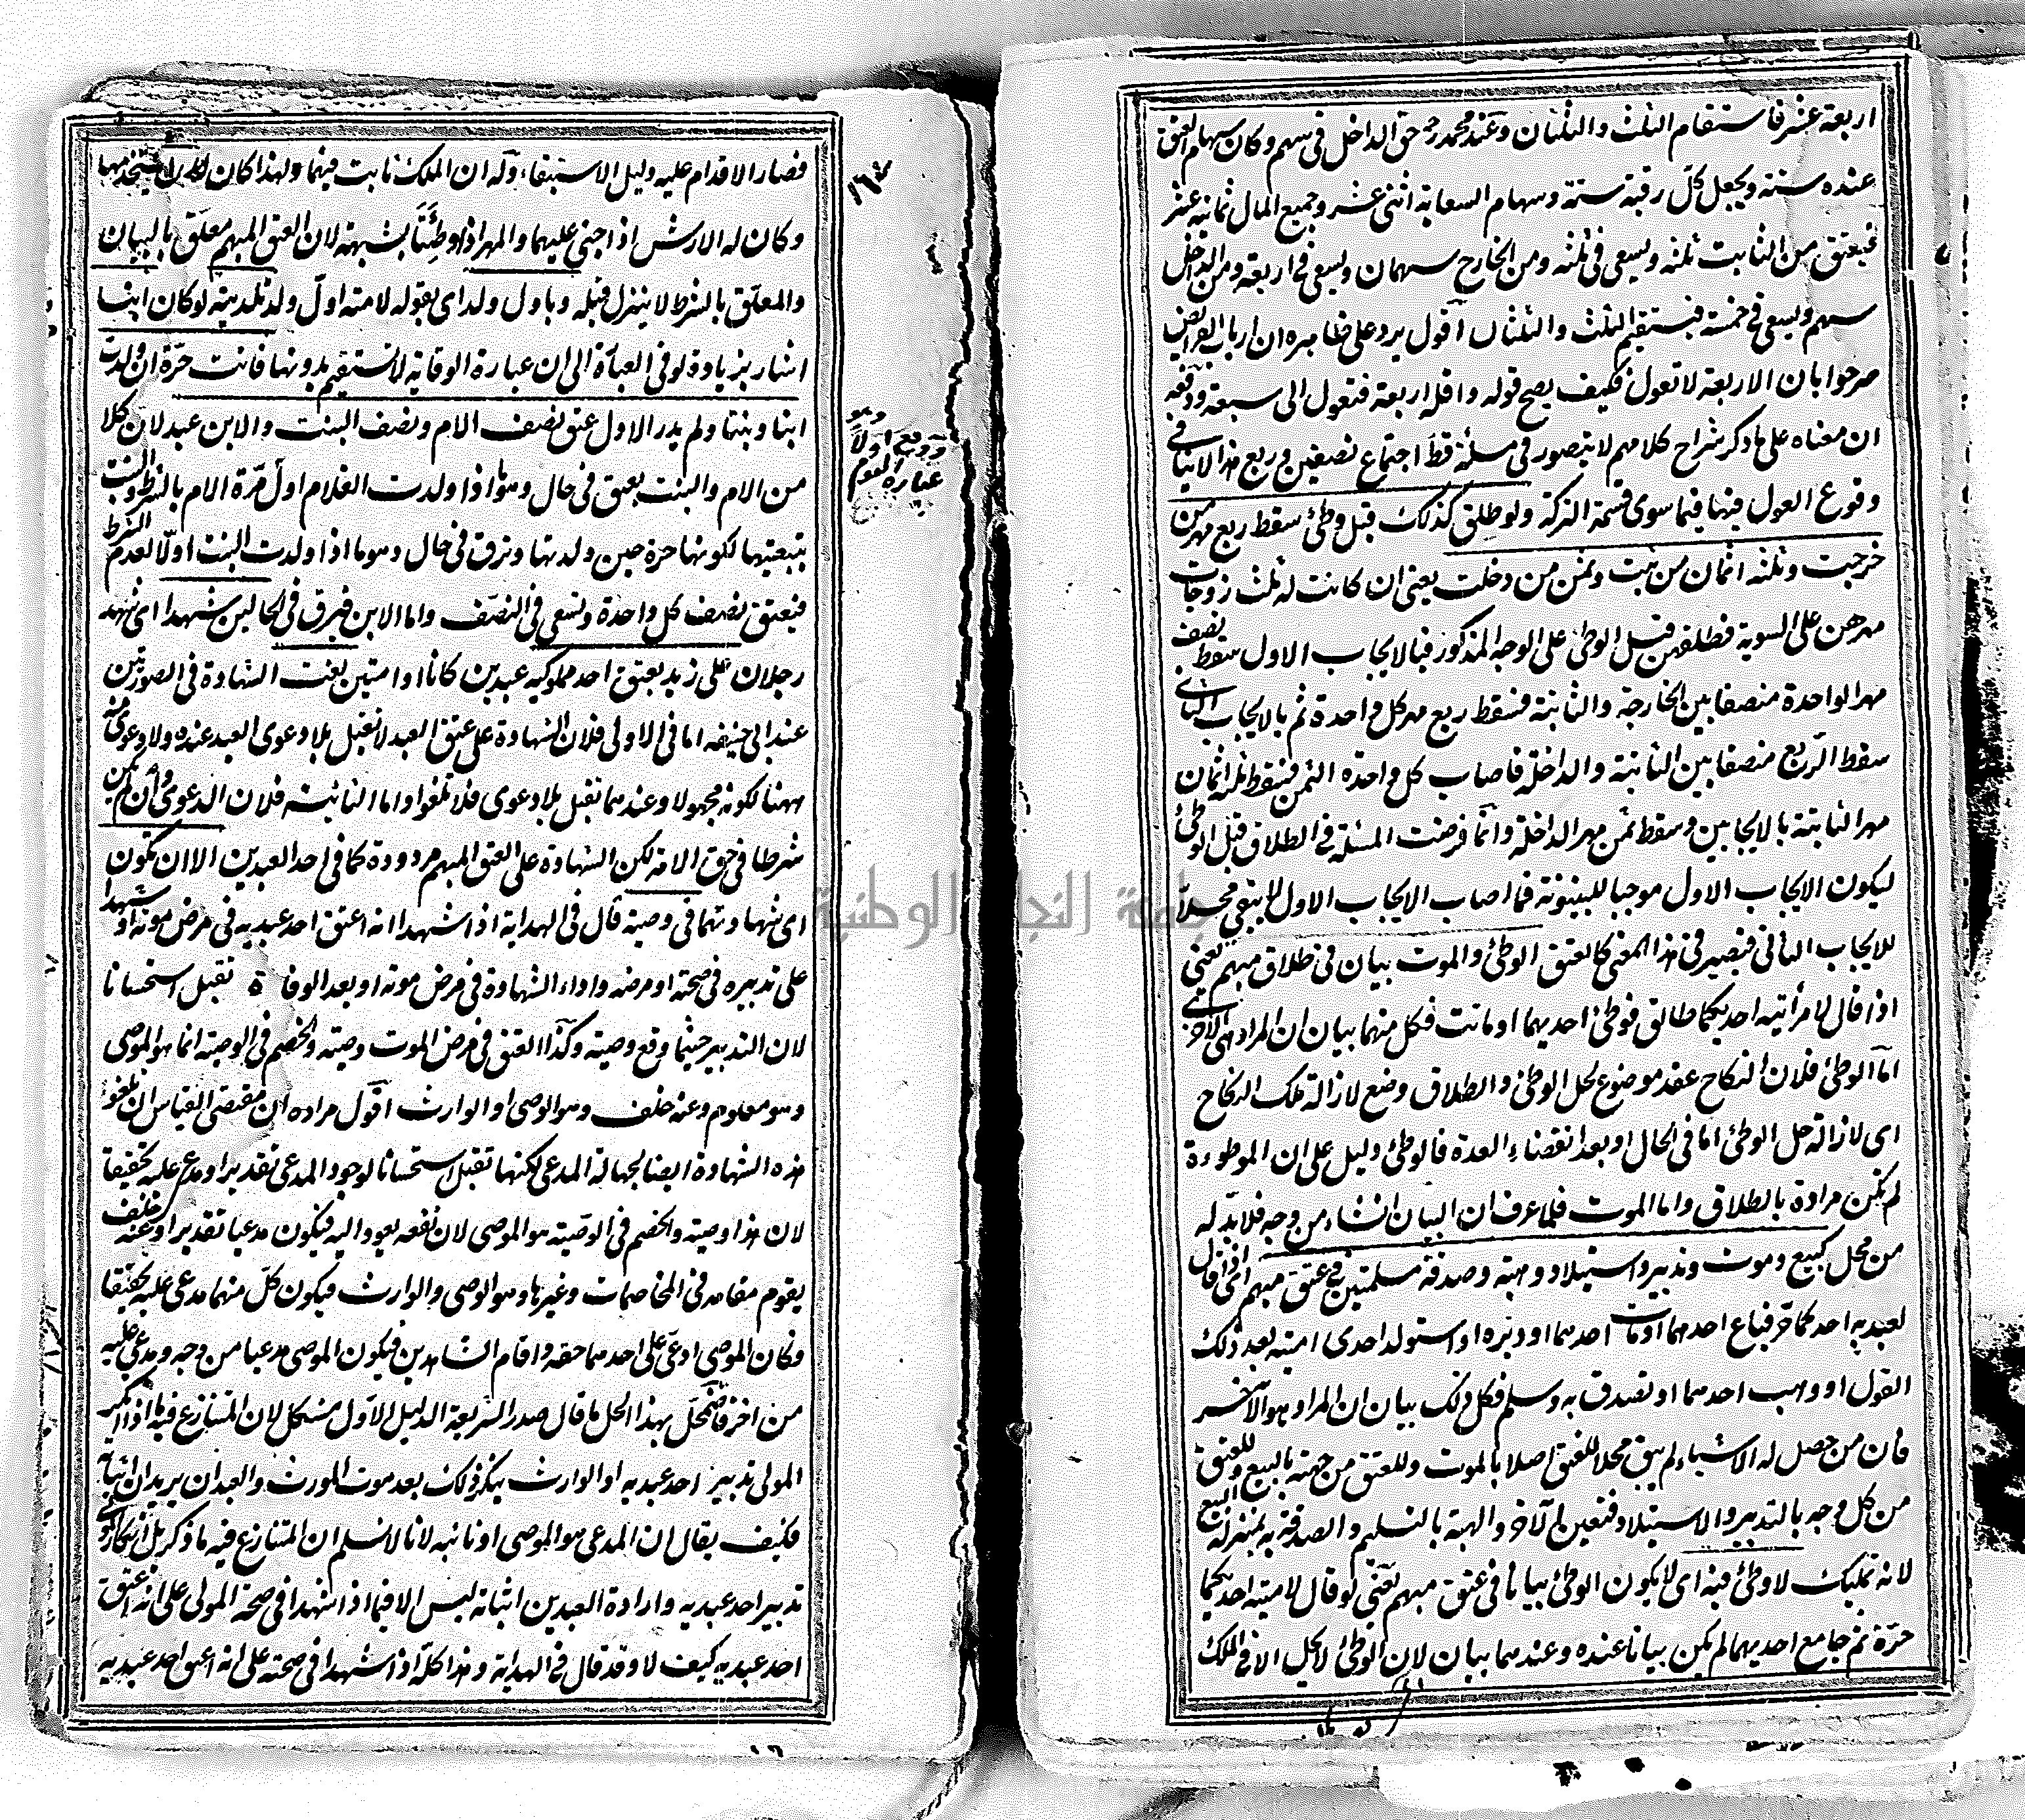 اربعة عشر فاستقام الثلث والثلثان وعند محمد رح حق الداخل فى سهم وكان سهام العتق
عنده ستة ويجعل كل رقبة ستة وسهام السعاية اثنى عشر وجميع المال ثمانية عشر
فيعتق من الثابت ثلثه ويسعى فى ثلثه ومن الخارج سهمان ويسعى فى اربعة ومن الداخل
سهم ويسعى فى خمسة فيستقيم الثلث والثلثان اقول يرد على ظاهره ان ارباب الفرائض
صرحوا بان الاربعة لا تعول فكيف يصح قوله واقله اربعة فتعول الى سبعة ودفعه
ان معناه على ما ذكر شراح كلامهم لا يتصور فى مسئلة قط اجتماع نصفين وربع هذا لا ينافى
وقوع العول فيها فيما سوى قسمة التركة ولو طلق كذلك قبل وطئ سقط ربع مهر من
خرجت وثلثة اثمان من ثبتت وثمن من دخلت يعنى ان كانت له ثلث زوجات
مهرهن على السوية فطلقهن قبل الوطئ على الوجه المذكور فبالايجاب الاول سقط نصف
مهر الواحدة منصفا بين الخارجة والثابتة فسقط ربع مهر كل واحدة ثم بالايجاب الثانى
سقط الربع منصفا بين الثابتة والداخلة فاصاب كل واحدة الثمن فسقط ثلثة اثمان
مهر الثابتة بالايجابين وسقط ثمن مهر الداخلة وانما فرضت المسئلة فى الطلاق قبل الوطئ
ليكون الايجاب الاول موجبا للبينونة فما اصاب الايجاب الاول لا يبقى محلا
للايجاب الثانى فيصير فى هذا المعنى كالعتق الوطئ والموت بيان فى طلاق مبهم يعنى
اذا قال لامرأتيه احديكما طالق فوطئ احديهما او ماتت فكل منهما بيان ان المراد هى الاخرى
اما الوطئ فلان النكاح عقد موضوع لحل الوطئ والطلاق وضع لازالة ملك النكاح
اى لازالة حل الوطئ اما فى الحال او بعد انقضاء العدة فالوطئ دليل على ان الموطوءة
لم يكن مرادة بالطلاق واما الموت فلما عرف ان البيان انشاء من وجه فلا بد له
من محل كبيع وموت وتدبير واستيلاد وهبة وصدقة مسلمتين فى عتق مبهم اى اذا قال
لعبديه احدكما حر فباع احدهما او مات احدهما او دبره او استولد احدى امتيه بعد ذلك
القول او وهب احدهما او تصدق به وسلم فكل ذلك بيان ان المراد هو الآخر
فان من حصل له الاشياء لم يبق محلا للعتق اصلا بالموت وللعتق من جهته بالبيع وللعتق
من كل وجه بالتدبير والاستيلاد فتعين الآخر والهبة بالتسليم والصدقة به بمنزلة البيع
لانه تمليك لا وطئ فيه اى لا يكون الوطئ بيانا فى عتق مبهم يعنى لو قال لامتيه احديكما
حرة ثم جامع احديهما لم يكن بيانا عنده وعندهما بيان لان الوطئ لا يحل الا فى الملك
١٦٧
فصار الاقدام عليه دليل الاستبقاء وله ان الملك ثابت فيهما ولهذا كان له ان يستخدمهما
وكان له الارش اذا جنى عليهما والمهر اذا وطئتا بشبهة لان العتق المبهم معلق بالبيان
والمعلق بالشرط لا ينزل قبله وباول ولد اى بقوله لامته اول ولد تلدينه لو كان ابنا
اشار بزيادة لو فى العبارة الى ان عبارة الوقاية لا تستقيم بدونها فانت حرة ان ولدت
ابنا وبنتا ولم يدر الاول عتق نصف الام ونصف البنت والابن عبد لان كلا
من الام والبنت يعتق فى حال وهو ما اذا ولدت الغلام اول مرة الام بالشرط والبنت
بتبعيتها لكونها حرة حين ولدتها وترق فى حال وهو ما اذا ولدت البنت اولا لعدم الشرط
فيعتق نصف كل واحدة وتسعى فى النصف واما الابن فيرق فى الحالين شهدا اى شهد
رجلان على زيد بعتق احد مملوكيه عبدين كانا او امتين لغت الشهادة فى الصورتين
عند ابى حنيفة اما فى الاولى فلان الشهادة على عتق العبد لا تقبل بلا دعوى العبد عنده ولا دعوى منه
ههنا لكونه مجهولا وعندهما تقبل بلا دعوى فلا تلغوا واما الثانية فلان الدعوى وان لم يكن
شرطا فى حق الامة لكن الشهادة على العتق المبهم مردودة كما فى احد العبدين الا ان تكون
اى شهادتهما فى وصية قال فى الهداية اذا شهدا انه اعتق احد عبديه فى مرض موته او شهدا
على تدبيره فى صحته او مرضه واداء الشهادة فى مرض موته او بعد الوفاة تقبل استحسانا
لان التدبير حيثما وقع وصية وكذا العتق فى مرض الموت وصية والخصم فى الوصية انما هو الموصى
وهو معلوم وعنه خلف وهو الوصى او الوارث اقول مراده ان مقتضى القياس ان تلغو
هذه الشهادة ايضا لجهالة المدعى لكنها تقبل استحسانا لوجود المدعى تقديرا ومدعى عليه تحقيقا
لان هذا وصية والخصم فى الوصية هو الموصى لان نفعه يعود اليه فيكون مدعيا تقديرا وعنه خلف
يقوم مقامه فى المخاصمات وغيرها وهو الوصى والوارث فيكون كل منهما مدعى عليه تحقيقا
وكان الموصى ادعى على احدهما حقه واقام الشاهدين فيكون الموصى مدعيا من وجه ومدعى عليه
من اخر فاضمحل بهذا الحل ما قال صدر الشريعة الدليل الاول مشكل لان المتنازع فيه ما اذا انكر
المولى تدبير احد عبديه او الوارث ينكر ذلك بعد موت المورث والعبدان يريدان اثباته
فكيف يقال ان المدعى هو الموصى او نائبه لانا لا نسلم ان المتنازع فيه ما ذكر بل انكار المولى
تدبير احد عبديه وارادة العبدين اثباته ليس الا فيما اذا شهدا فى صحة المولى على انه اعتق
احد عبديه كيف لا وقد قال فى الهداية وهذا كله اذا شهدا فى صحته على انه اعتق احد عبديه
وهو
عبارة القوم
جامعة النجاح الوطنية